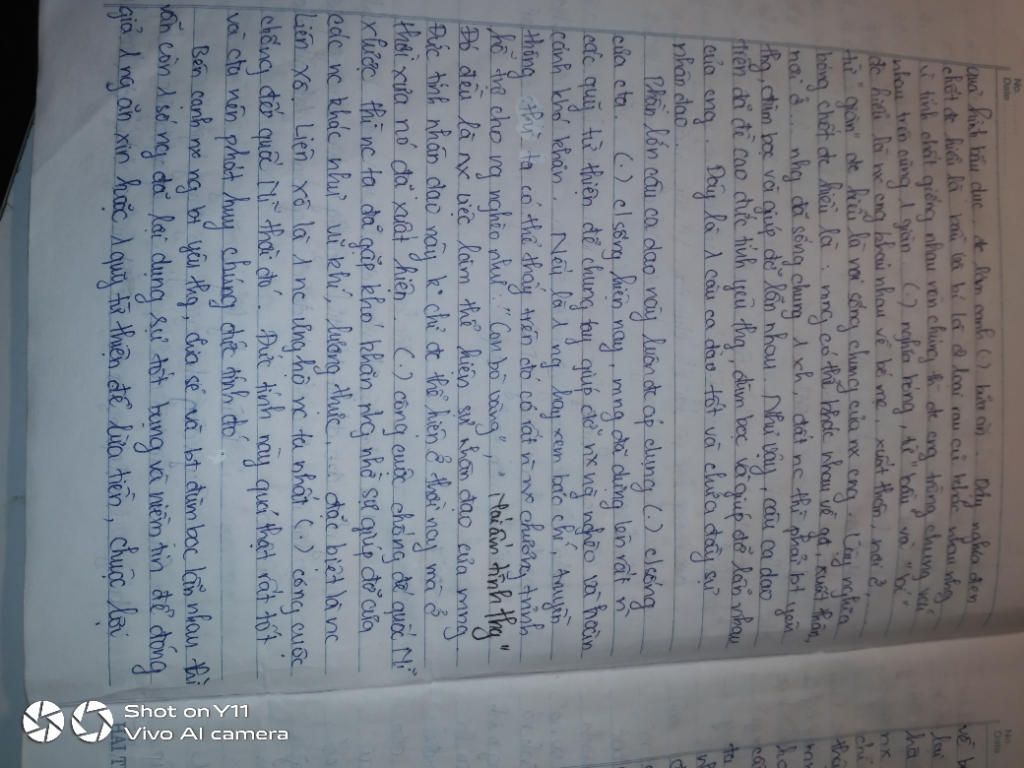 No.
Date
chất dễ hiểu là bầu và bí là 2 loại rau củ khác nhau nhưng
vì tính chất giống nhau nên chúng thì đc ng trồng chung với
nhau trên cùng 1 giàn. (.) nghĩa bóng, từ "bầu" và "bí"
đc hiểu là nx cng khác nhau về bề mẽ, xuất thân, nơi ở,
từ "giàn" đc hiểu là nơi sống chung của nx cng. Vậy nghĩa
bóng chốt đc hiểu là: mng có thể khác nhau về gt, xuất thân,
nơi ở... nhg đã sống chung 1 xh, đất nc thì phải bt yêu
thg, đùm bọc và giúp đỡ lẫn nhau. Như vậy, câu ca dao
trên đã đề cao đức tính yêu thg, đùm bọc và giúp đỡ lẫn nhau
của cng. Đây là 1 câu ca dao tốt và chứa đầy sự
nhân đạo.
Phần lớn câu ca dao này luôn đc áp dụng (.) c/sống
của cta. (.) c/sống hiện nay, mng đã dựng lên rất n`
các quỹ từ thiện để chung tay giúp đỡ nx ng nghèo và hoàn
cảnh khó khăn. Nếu là 1 ng hay xem báo chí, truyền
thông thì ta có thể thấy trên đó có rất n` chương trình
hỗ trợ cho ng nghèo như: "Con bò vàng", "Mái ấm tình thg"
Đó đều là nx việc làm thể hiện sự nhân đạo của mng.
Đức tính nhân đạo này k chỉ đc thể hiện ở thời nay mà ở
thời xưa nó đã xuất hiện. (.) công cuộc chống đế quốc Mĩ
xâm lược thì nc ta đã gặp khó khăn nhg nhờ sự giúp đỡ của
các nc khác như vũ khí, lương thực,... đặc biệt là nc
Liên Xô. Liên Xô là 1 nc ủng hộ nc ta nhất (.) công cuộc
chống đế quốc Mĩ thời đó. Đức tính này quả thật rất tốt
và cta nên phát huy chúng đức tính đó.
Bên cạnh nx ng bt yêu thg, chia sẻ và bt đùm bọc lẫn nhau thì
vẫn còn 1 số ng đã lợi dụng sự tốt bụng và niềm tin để đóng
giả 1 ng ăn xin hoặc 1 quỹ từ thiện để lừa tiền, chuộc lợi
No.
Date
Shot on Y11
Vivo AI camera